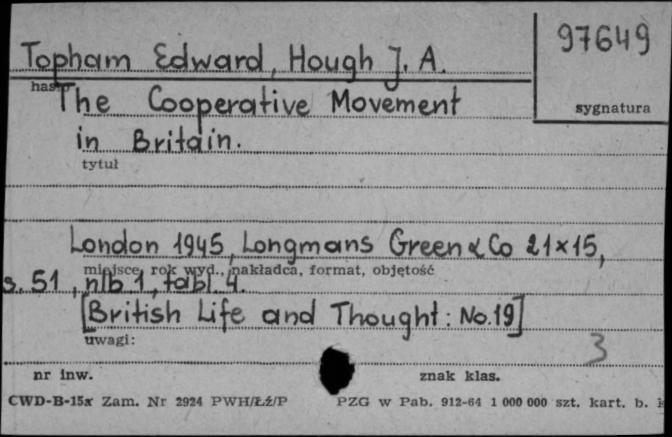 Topham Edward, Hough J. A.
97649
hasło
The Cooperative Movement
sygnatura
in Britain.
tytuł
London 1945, Longmans Green & Co 21×15,
miejsce, rok wyd., nakładca, format, objętość
s. 51, nlb 1, tabl. 4.
[British Life and Thought: No.19]
uwagi:
3
nr inw.
znak klas.
CWD-B-15x Zam. Nr 2924 PWH/Łź/P PZG w Pab. 912-64 1 000 000 szt. kart. b. k